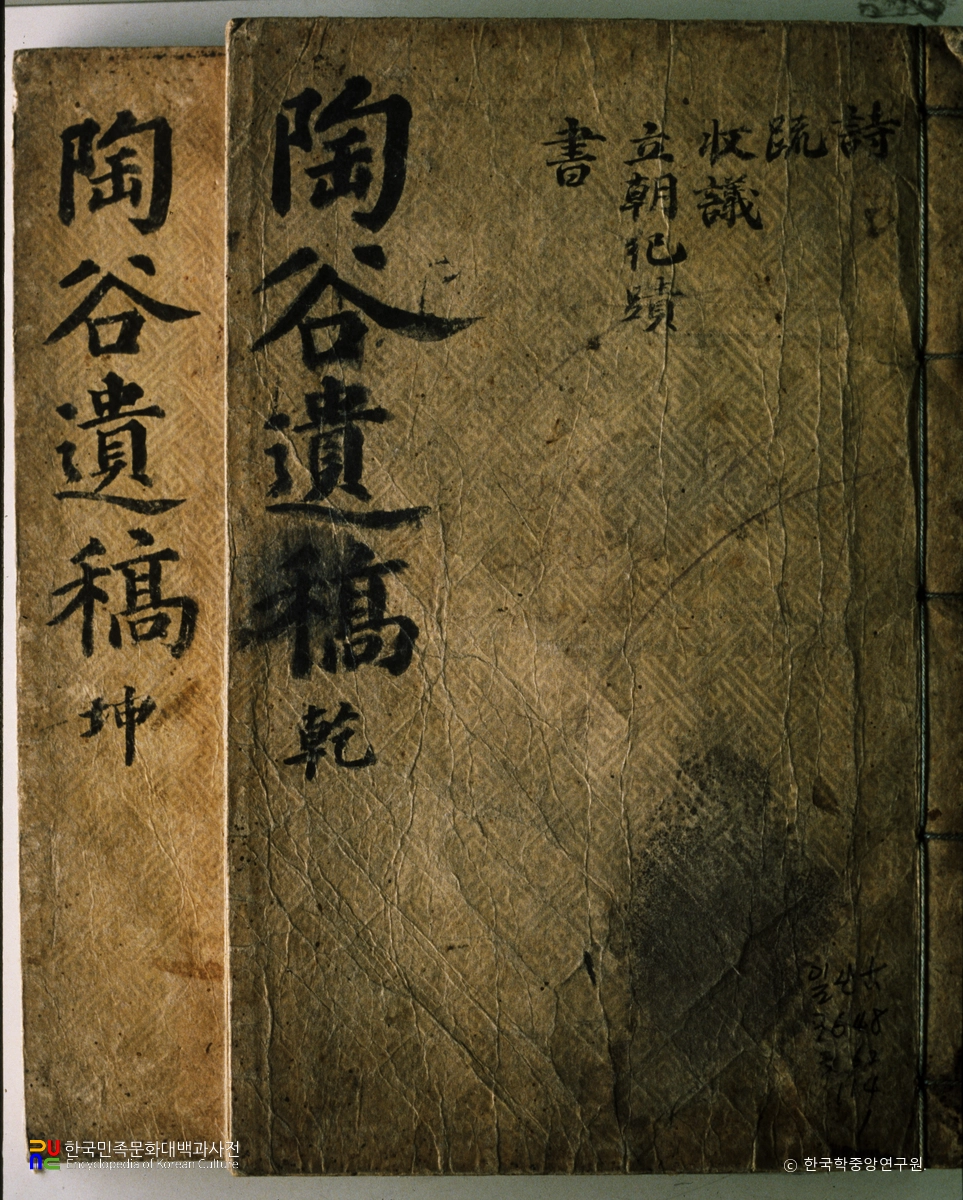 詩
疏
收議
立朝祀蹟
書
陶谷遺稿 乾
陶谷遺稿 坤
일산古
3648
한국민족문화대백과사전
Encyclopedia of Korean Culture
© 한국학중앙연구원.